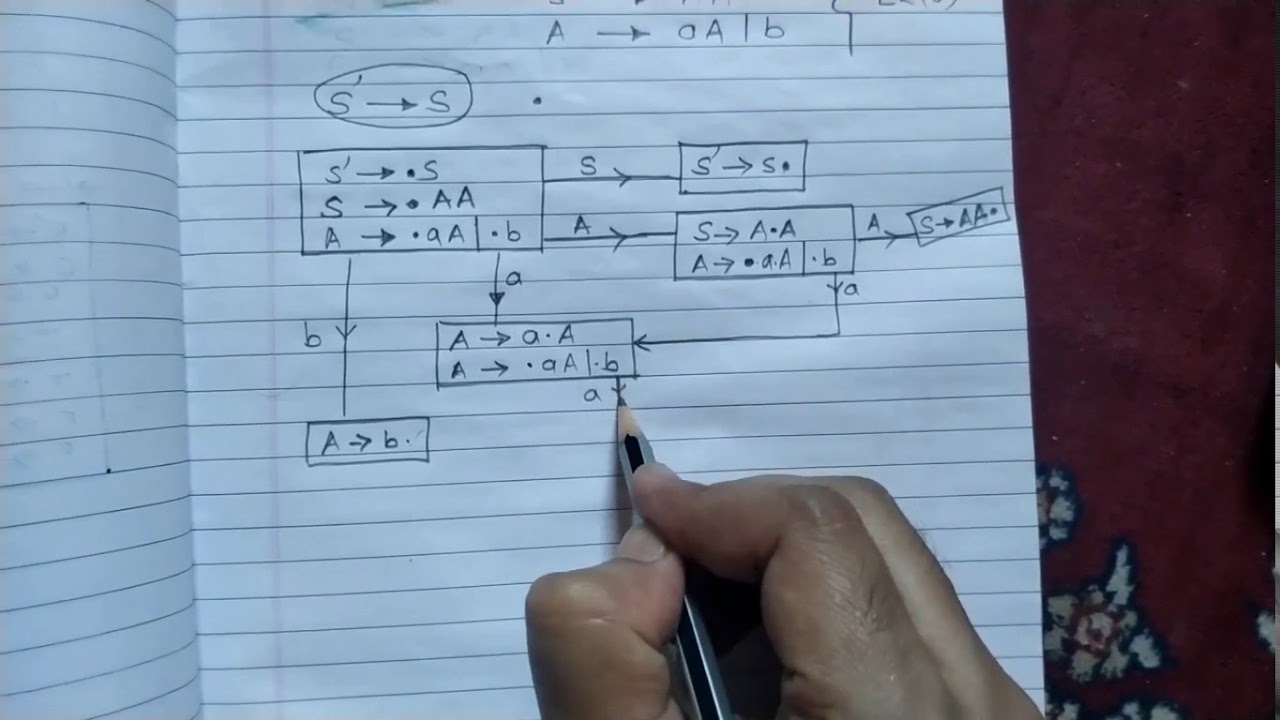 A → aA | b
S' → S
S' → •S
S → •AA
A → •aA | •b
S
S' → S•
A
S → A•A
A → •aA | •b
A
S → AA•
a
a
b
A → a•A
A → •aA | •b
a
A → b•